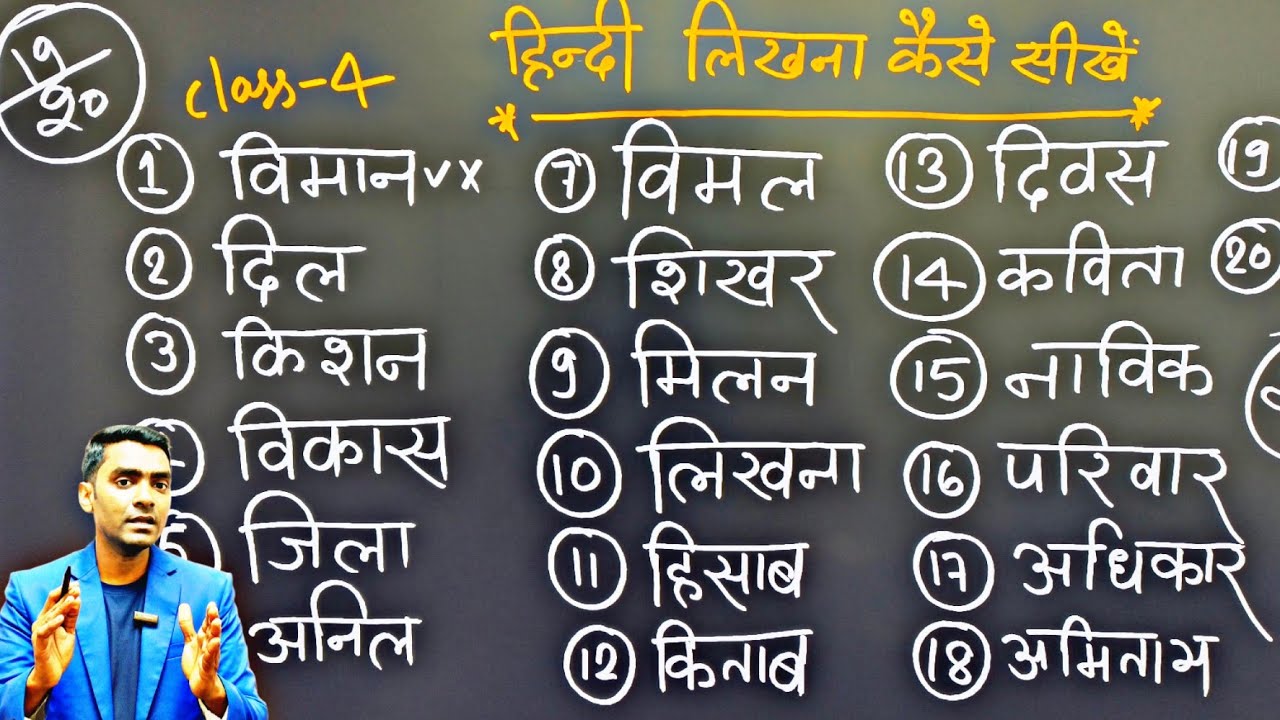 19
20
class-4
हिन्दी लिखना कैसे सीखें
1 विमान ✓×
2 दिल
3 किशन
विकास
5 जिला
अनिल
7 विमल
8 शिखर
9 मिलन
10 लिखना
11 हिसाब
12 किताब
13 दिवस
14 कविता
15 नाविक
16 परिवार
17 अधिकार
18 अमिताभ
19
20